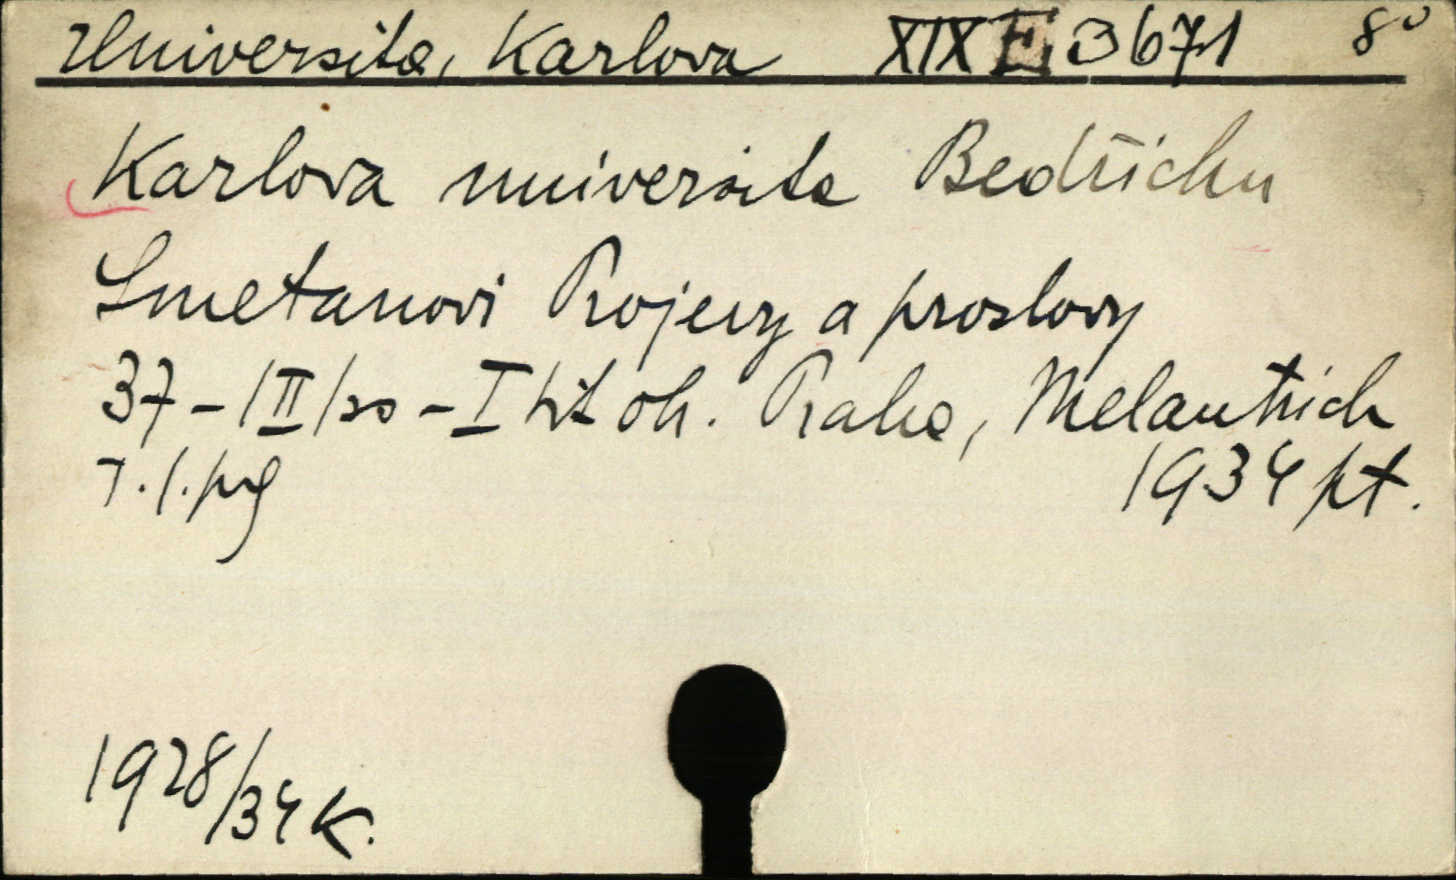 Universita, Karlova XIX E 3671 8°
Karlova universita Bedřichu
Smetanovi Projevy a proslovy
37 – /II/ss – I tit ob. Praha, Melantrich
T. 1934 pt.
1928/34 K.